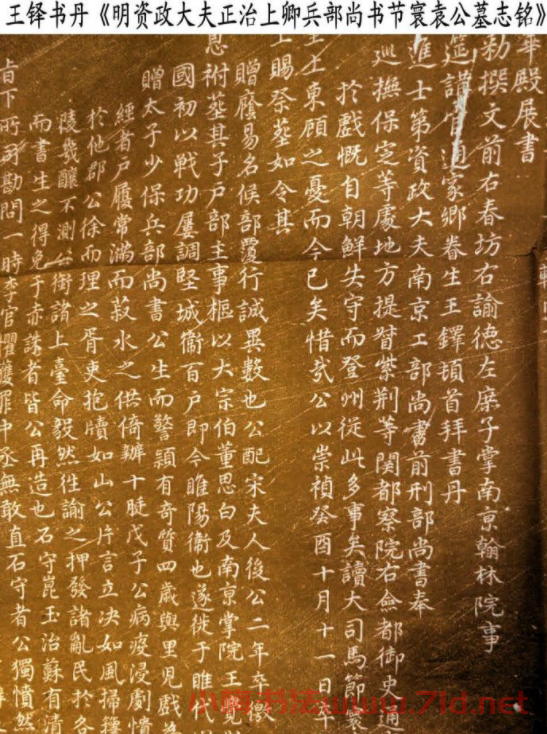 王铎书丹《明资政大夫正治上卿兵部尚书节寰袁公墓志铭》
華殿展書
勅撰文前右春坊右諭德左庶子掌南京翰林院事
筵講官通家鄉眷生王鐸頓首拜書丹
進士第資政大夫南京工部尚書前刑部尚書奉
巡撫保定等處地方提督紫荆等関都察院右僉都御史通
於戲慨自朝鮮失守而登州從此多事矣讀大司馬節寰
上東顧之憂而今已矣惜哉公以崇禎癸酉十月十一日卒
上賜祭塟如令其
贈廕易名候部覆行誠異數也公配宋夫人後公二年卒
息祔塟其子户部主事樞以大宗伯董思白及南京掌院王覺
國初以戰功屢調堅城衞百户即今睢陽衞也遂徙于睢代
贈太子少保兵部尚書公生而警穎有奇質四歲與里兒戲
經者户履常滿而菽水之供倚辦十脡戊子公病疫浸劇憒
於他郡公徐而理之胥吏抱牘如山公片言立决如風掃籜
陵幾釀不測公銜諸上臺命毅然往諭之押發諸亂民於各
而書生之得免于赤誅者皆公再造也石守崑玉治蘇有清
旨下所司勘問一時李官懼獲罪中丞無敢直石守者公獨憤然
小楷书法www.7ld.net